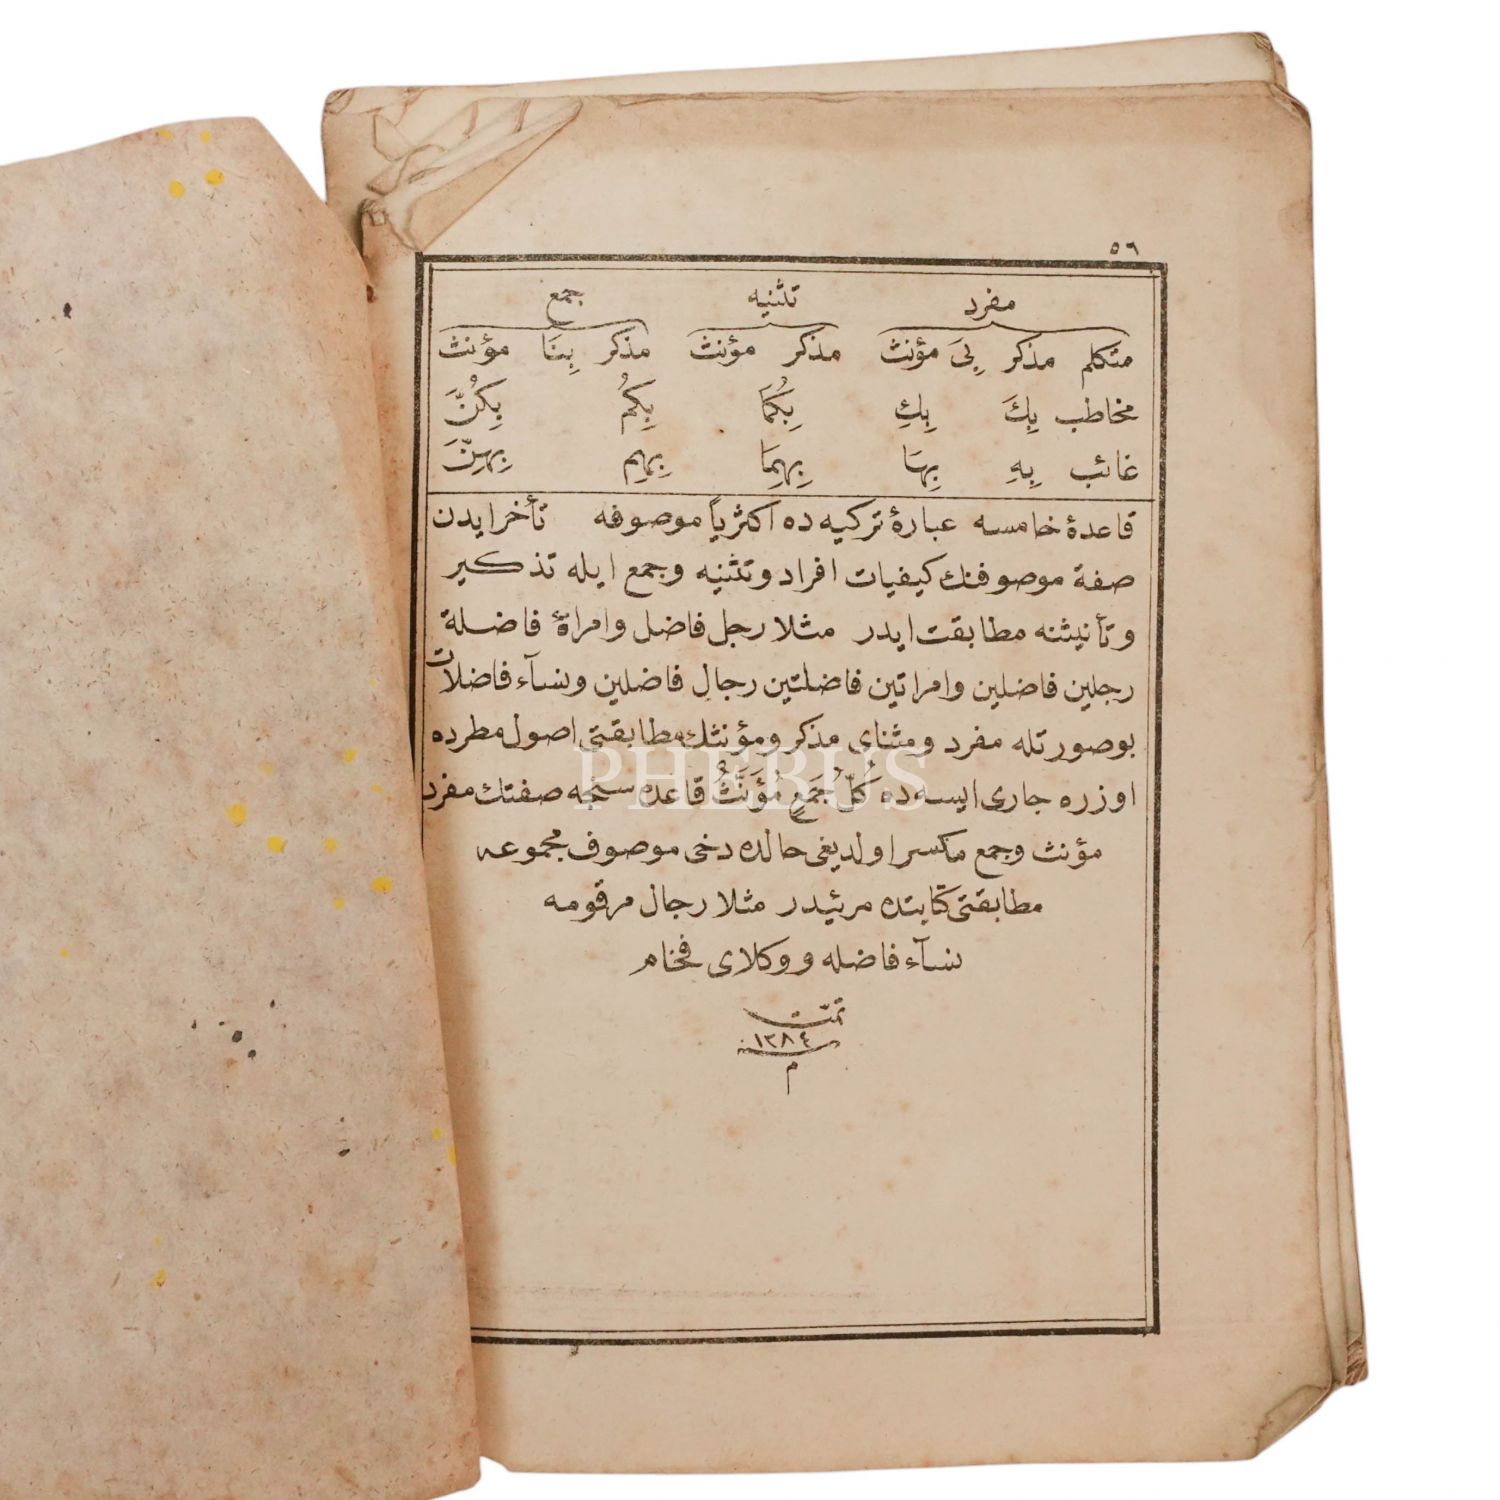 ٥٦
مفرد تثنيه جمع
متكلم مذكر بِىَ مؤنث مذكر مؤنث مذكر بِنَا مؤنث
مخاطب بِكَ بِكِ بِكُمَا بِكُمْ بِكُنَّ
غائب بِهِ بِهَا بِهِمَا بِهِم بِهِنَّ
قاعدۀ خامسه عبارۀ تركيه ده اكثرياً موصوفه تأخر ايدن
صفة موصوفنك كيفيات افراد و تثنيه و جمع ايله تذكير
و تأنيثنه مطابقت ايدر مثلا رجل فاضل و امراۀ فاضلة
رجلين فاضلين و امراتين فاضلتين رجال فاضلين و نسآء فاضلات
بوصورتله مفرد و مثناى مذكر و مؤنثك مطابقتى اصول مطرده
اوزره جارى ايسه ده كُلّ جَمَعٍ مُؤَنَّثُ قاعده سنجه صفتك مفرد
مؤنث و جمع مكسر اولديغى حالده دخى موصوف مجموعه
مطابقتى كتابتده مرئيدر مثلا رجال مرقومه
نسآء فاضله و وكلاى فخام
تمت
سنه ١٢٨٤
م
PHEBUS